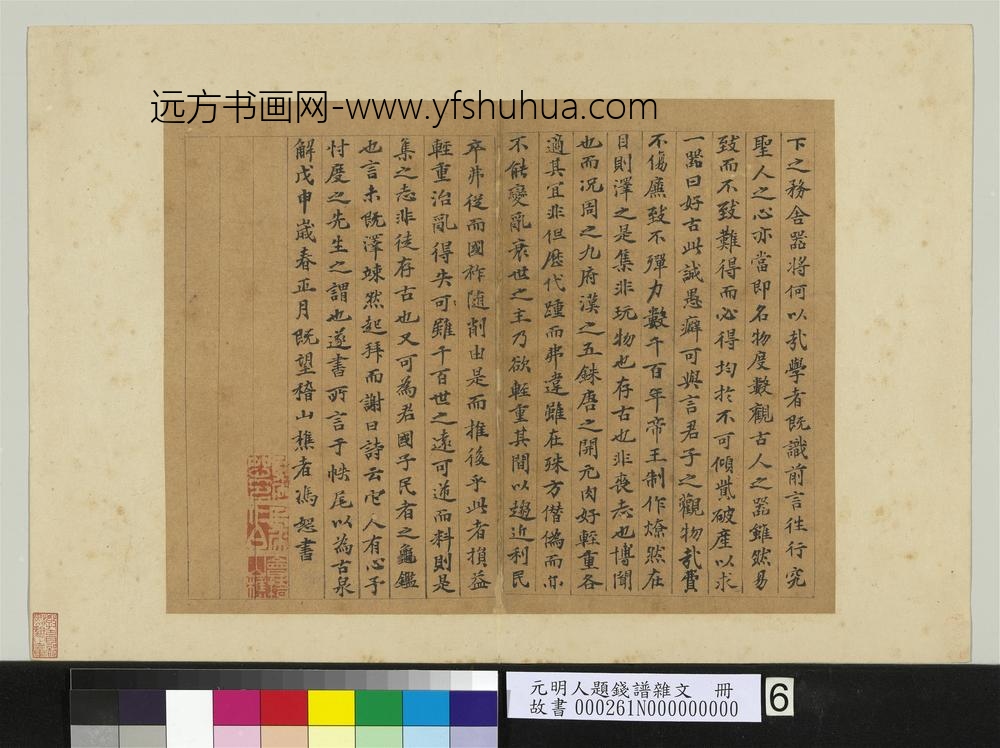 远方书画网-www.yfshuhua.com
下之務舍器將何以哉學者既識前言往行究
聖人之心亦當即名物度數觀古人之器雖然易
致而不致難得而必得均於不可傾貲破產以求
一器曰好古此誠愚癖可與言君子之觀物哉費
不傷廉致不殫力數千百年帝王制作燎然在
目則澤之是集非玩物也存古也非喪志也博聞
也而況周之九府漢之五銖唐之開元肉好輕重各
適其宜非但歷代踵而弗違雖在殊方僭偽而亦
不能變亂衰世之主乃欲輕重其間以趨近利民
卒弗從而國祚随削由是而推後乎此者損益
輕重治亂得失可雖千百世之遠可逆而料則是
集之志非徒存古也又可為君國子民者之龜鑑
也言未既澤竦然起拜而謝曰詩云它人有心予
忖度之先生之謂也遂書所言于帙尾以為古泉
解戊申歲春正月既望稽山樵者馮恕書
元明人題錢譜雜文 冊
故書 000261N000000000
6